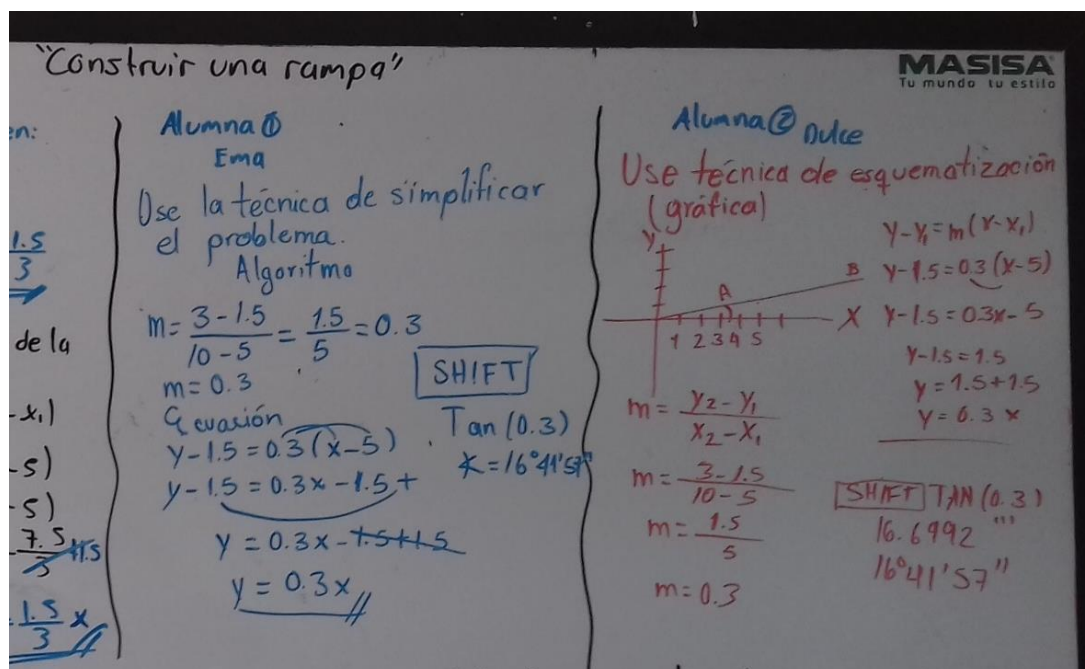 "Construir una rampa"
MASISA
Tu mundo tu estilo
en:
1.5
3
de la
- x₁)
-5)
-5)
7.5 +1.5
3
1.5 x
3
Alumna ①
Ema
Use la técnica de simplificar
el problema.
Algoritmo
m= 3 - 1.5 / 10 - 5 = 1.5 / 5 = 0.3
m= 0.3
Ecuación
y - 1.5 = 0.3 (x - 5)
y - 1.5 = 0.3x - 1.5 +
y = 0.3x - 1.5 + 1.5
y = 0.3x
SHIFT
Tan (0.3)
∝ = 16°41'57"
Alumna ② Dulce
Use técnica de esquematización
(gráfica)
Y
A
B
X
1 2 3 4 5
m = y₂ - y₁ / x₂ - x₁
m = 3 - 1.5 / 10 - 5
m = 1.5 / 5
m = 0.3
y - y₁ = m (x - x₁)
y - 1.5 = 0.3 (x - 5)
y - 1.5 = 0.3x - 5
y - 1.5 = 1.5
y = 1.5 + 1.5
y = 0.3 x
SHIFT TAN (0.3)
16.6992 °'"
16°41'57"